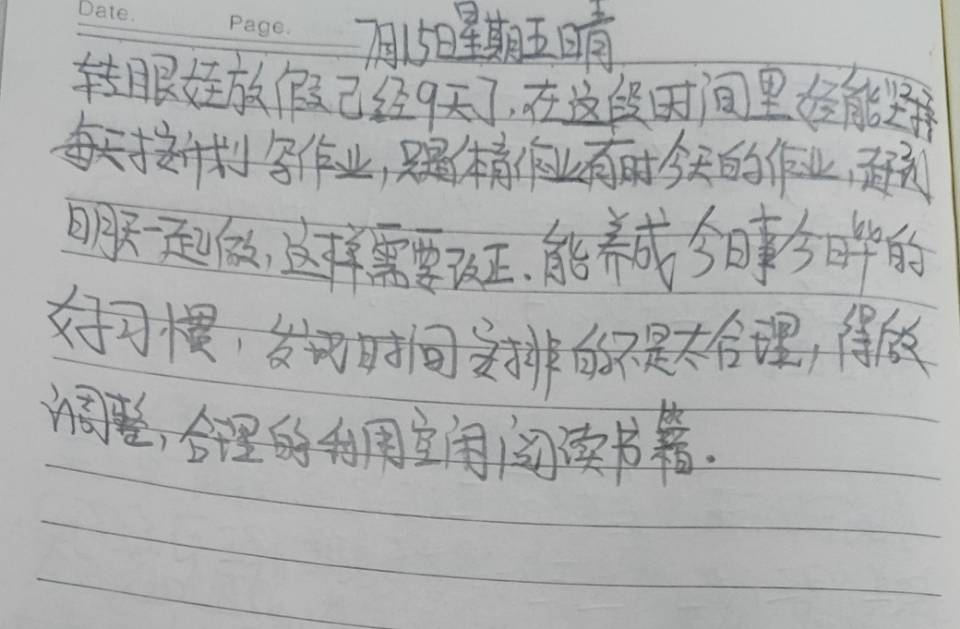 Date.
Page.
7月15日星期五日晴
转眼娃放假已经9天了.在这段时间里娃能坚持
每天按计划写作业,只是体育作业有时今天的作业,推到
明天一起做,这样需要改正.能养成今日事今日毕的
好习惯,发现时间安排的不是太合理,得做
调整,合理的利用空闲阅读书籍.